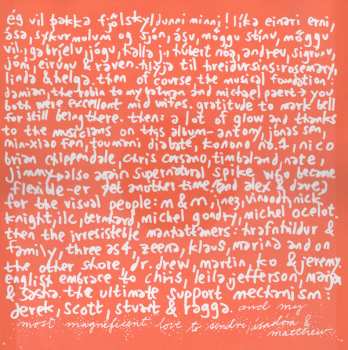 ég vil þakka fjölskyldunni minni! líka einari erni,
ása, sykurmolum og sjón, ásu, möggu stínu, möggu
vil, gabríelu, jógu, halla j, hubert nóa, andrew, sigrúnu,
jóni, eirúnu & raven. hizja til hreidursins: rosemary,
linda & helga. then of course the musical foundation
damian, the robin to my batman and michael paert → you
both were excellent mid wifes. gratitude to mark bell
for still being there. then: a lot of glow and thanks
to the musicians on thys album - antony, jónas sen,
min-xiao fen, toumani diabate, konono no.1, nico
brian chippendale, chris corsano, timbaland, nate,
jimmy. also again supernatural spike who became
flexible-er yet another time. and alex & dave)
for the visual people: m & m, inez, vinoodh, nick
knight, ilc, bernhard, michel gondry, michel ocelot.
then the irresistable mantattamers: hrafnhildur &
family, three as4, zeena, klaus, marina and on
the other shore, dr. drew, martin, ko & jeremy.
english embrace to chris, leila, jefferson, maria
& sasha. the ultimate support mechanism:
derek, scott, stuart & ragga. and my
most magnificent love to sindri, ísadóra &
matthew